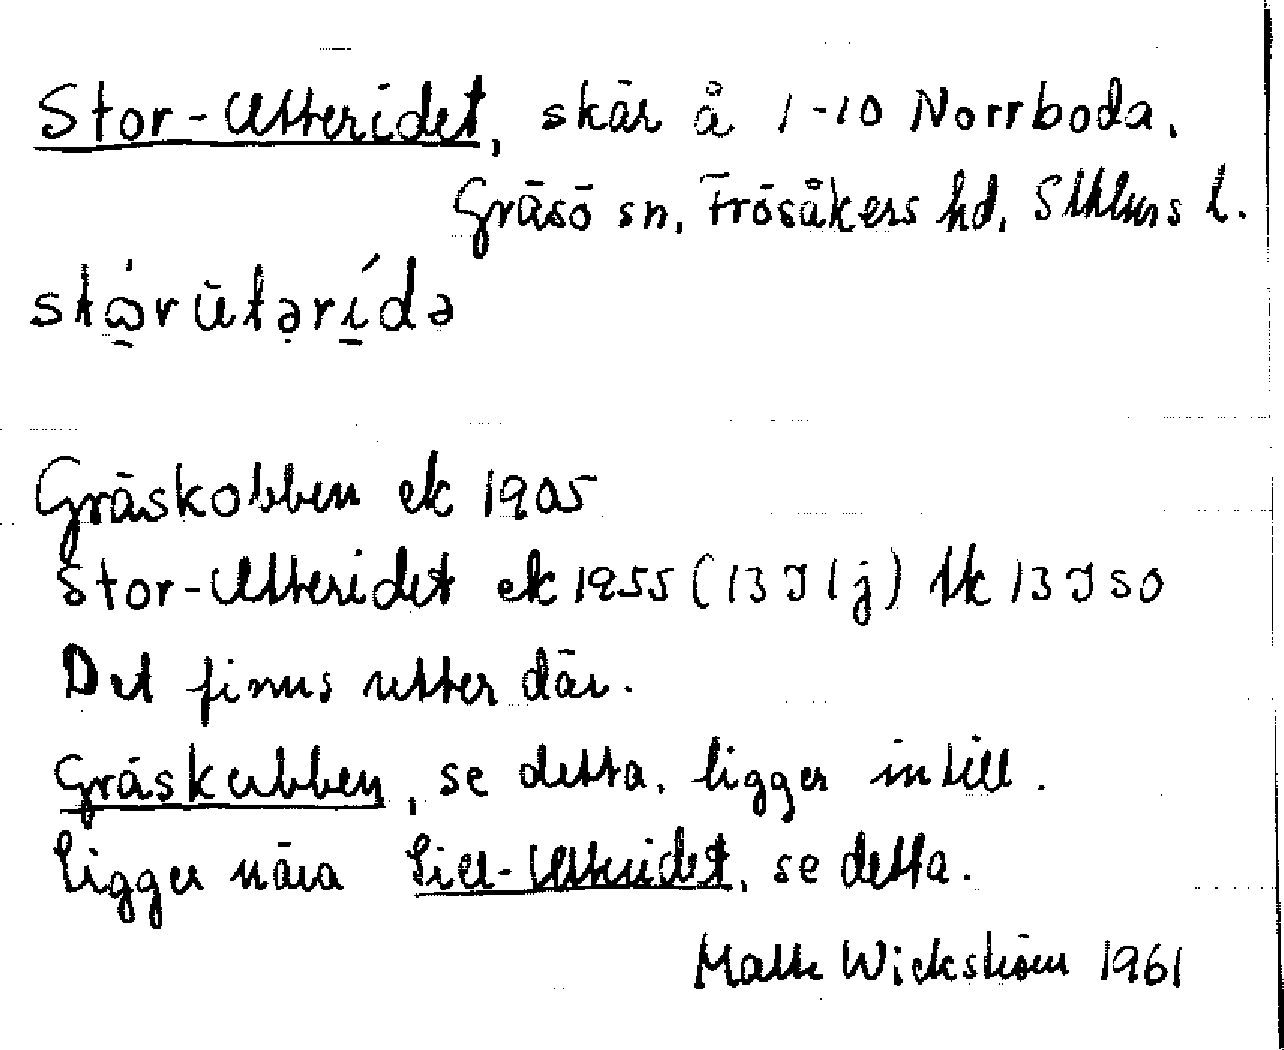 Stor-Utteridet, skär å 1-10 Norrboda,
Gräsö sn, Frösåkers hd, Sthlms l.
stɷ̀rūtərídə
Gräskobben ek 1905
Stor-Utteridet ek 1955 (13 I 1j) tk 13 I SO
Det finns utter där.
Gräskubben, se detta, ligger intill.
Ligger nära Lill-Utteridet, se detta.
Matts Wickström 1961